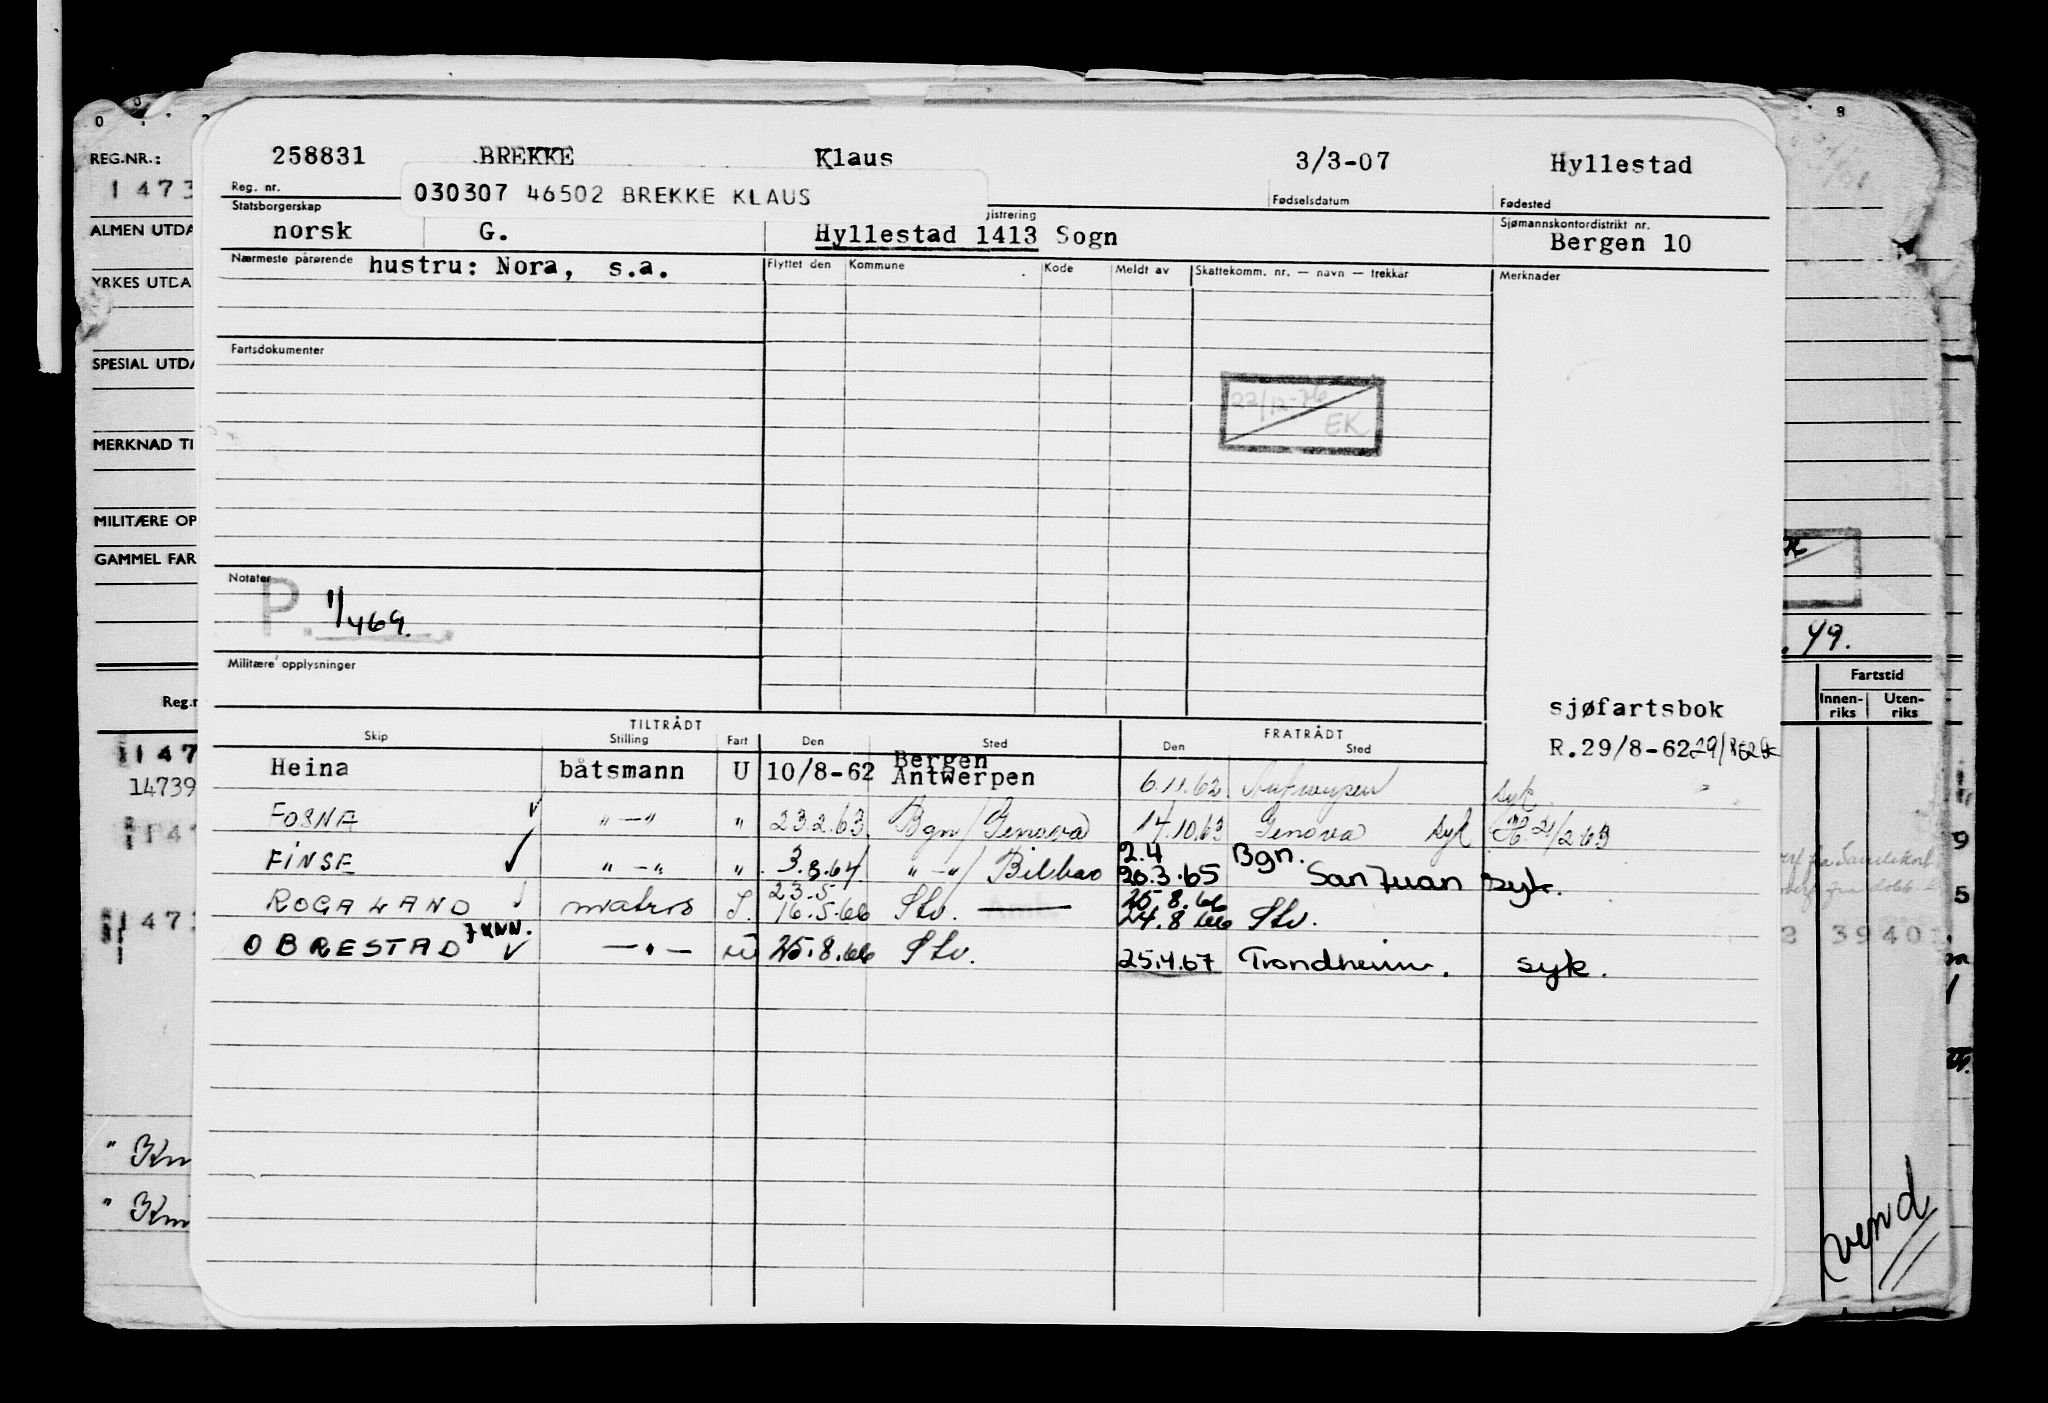 REG.NR.:
258831 BREKKE Klaus 3/3-07 Hyllestad
1473
Reg. nr. 030307 46502 BREKKE KLAUS Fødselsdatum Fødested
Statsborgerskap gistrering Sjømannskontordistrikt nr.
ALMEN UTDA
norsk G. Hyllestad 1413 Sogn Bergen 10
Nærmeste pårørende hustru: Nora, s.a. Flyttet den Kommune Kode Meldt av Skattekomm. nr. — navn — trekkår Merknader
YRKES UTDA
Fartsdokumenter
SPESIAL UTDA
22/12-76
EK
MERKNAD TI
MILITÆRE OP
GAMMEL FAR
Notater
P. 1/469.
. 49.
Militære opplysninger
Fartstid
Innen-riks Uten-riks
Reg.n
sjøfartsbok
TILTRÅDT FRATRÅDT
Skip Stilling Fart Den Sted Den Sted
R.29/8-62
Heina båtsmann U 10/8-62 Bergen Antwerpen 6.11.62 Antwerpen syk
147
14739
FOSNA " — " " 23.2.63 Bgn/Genova 14.10.63 Genova syk
FINSE " — " " 3.3.64 " — "/Bilbao 2.4 Bgn.
20.3.65 San Juan syk.
ROGALAND matros 23.5 16.5.66 Stv. 25.8.66
24.8.66 Stv.
1473
3940
OBRESTAD — " — 25.8.66 Stv. 25.4.67 Trondheim. syk.
9
5
vend